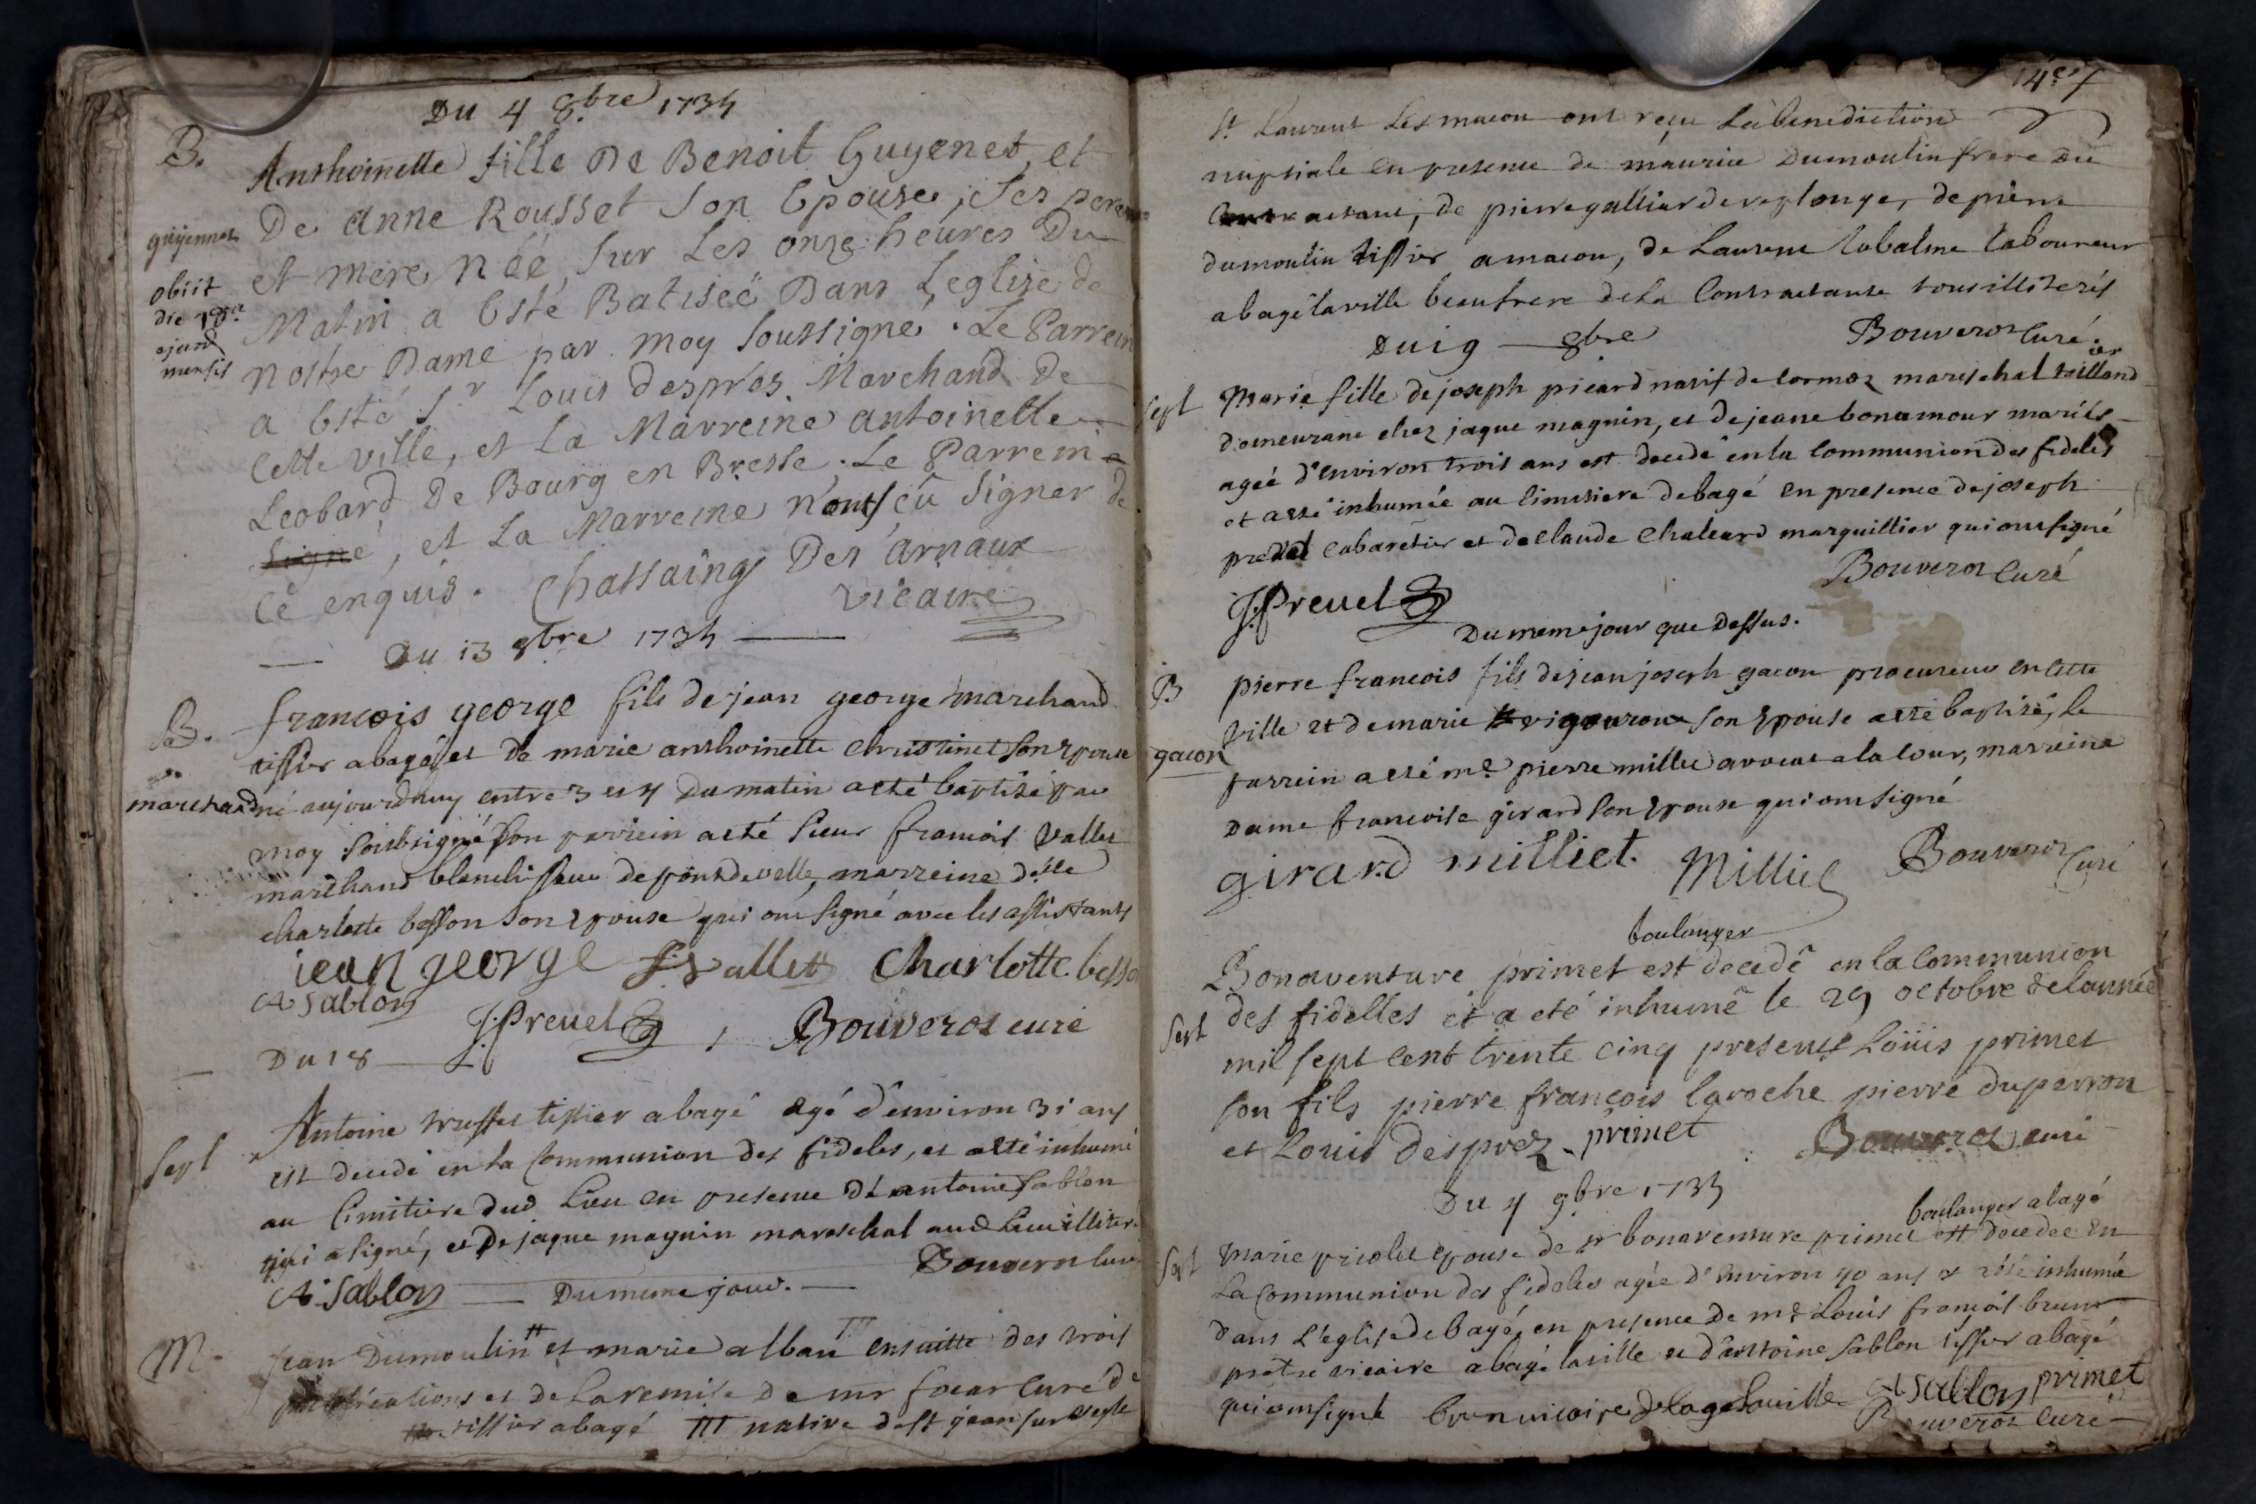 Du 4 8.bre 1735
B. Anthoinette fille De Benoit Guyenet, et
De Anne Rousset Son Epouse, Ses pere
guyennet et mere Néé Sur Les onze heures Du
obiit Matin a Esté Batiséé Dans Leglise de
die
ejusd
mensis Nostre Dame par moy Soussigné. Le Parrein
a Esté Sr Louis Desprès Marchand De
Cette Ville, et La Marreine Antoinette
Leobard De Bourg en Bresse. Le Parrein
Signé, et La Marreine N'ont Sçû Signer de
Cê enquis. Chassaing Des Arnaux
Vicaire
Du 13 8bre 1735
B. françois george fils de jean george marchand
tissier a bagé et de marie anthoinette christinet son epouse
marchand né aujourdhuy entre 3 et 4 Du matin a eté baptisé par
moy soubsigné Son parrein a eté Sieur françois Vallet
marchand blanchisseur de pont de velle, marreine dlle
charlotte besson son epouse qui ont signé avec les assistants
jean george f Vallett Charlotte besso
A Sablon J: Preuel Bouveros curé
Du 18
Sept Antoine trusset tissier a bagé agé d'environ 31 ans
est decedé en la Communion des fideles, et a eté inhumé
au Cimitiere dud Lieu en presence de antoine Sablon
qui a signé, et De jaque magnin mareschal aud Lieu illiter.
A: Sablon Du meme jour. Bouveros Curé
M. jean Dumoulin et marie alban ensuitte des trois
publications et de La remise de mr focar Curé de
tissier a bagé native de st jean sur vesle
St Laurent Les macon ont reçu La benediction
nuptiale en presence de maurice Dumoulin frere du
Contractant, de pierre galliard de replonge, de pierre
dumoulin tissier a macon, de Laurent Labalme Laboureur
a bagé la ville beaufrere de La Contractante tous illiterés
Du 19 8bre Bouveros Curé.
Sept Marie fille de joseph picard natif de cormoz mareschal taillandier
demeurant chez jaque magnin, et de jeane bonamour mariés
agéé d'environ trois ans est decedê en la Communion des fideles
et a esté inhumée au Cimitiere de bagé en presence de joseph
preval Cabaretier et de Claude Chaleard marguillier qui ont signé
Bouveros Curé
J: Preuel
Du meme jour que Dessus.
B pierre francois fils de jean joseph gacon procureur en cette
ville et de marie vigouroux son epouse a esté baptisé, le
gacon parrein a eté me pierre millet avocat a la Cour, marreine
Dame francoise girard son epouse qui ont signé
girard milliet. Milliet Bouveros Curé
boulanger
Bonaventure primet est decedé en la communion
Sept des fidelles et a eté inhumé le 29 octobre de lannée
mil sept cent trente cinq presents Loüis primet
son fils pierre françois laroche pierre duperron
et Louis Desprez primet Bouveros curé
Du 4 9bre 1735
boulanger a bagé
Sept marie picolet epouse de sr bonaventure primet est decedee en
La Communion des fideles agée d'environ 40 ans et a été inhumé
dans L'eglise de bagé, en presence de mre Louis françois brun
pretre vicaire a bagé la ville et d'antoine Sablon tissier a bagé
qui ont signé brun vicaire de bagé la ville A Sablon primet
Bouveros Curé